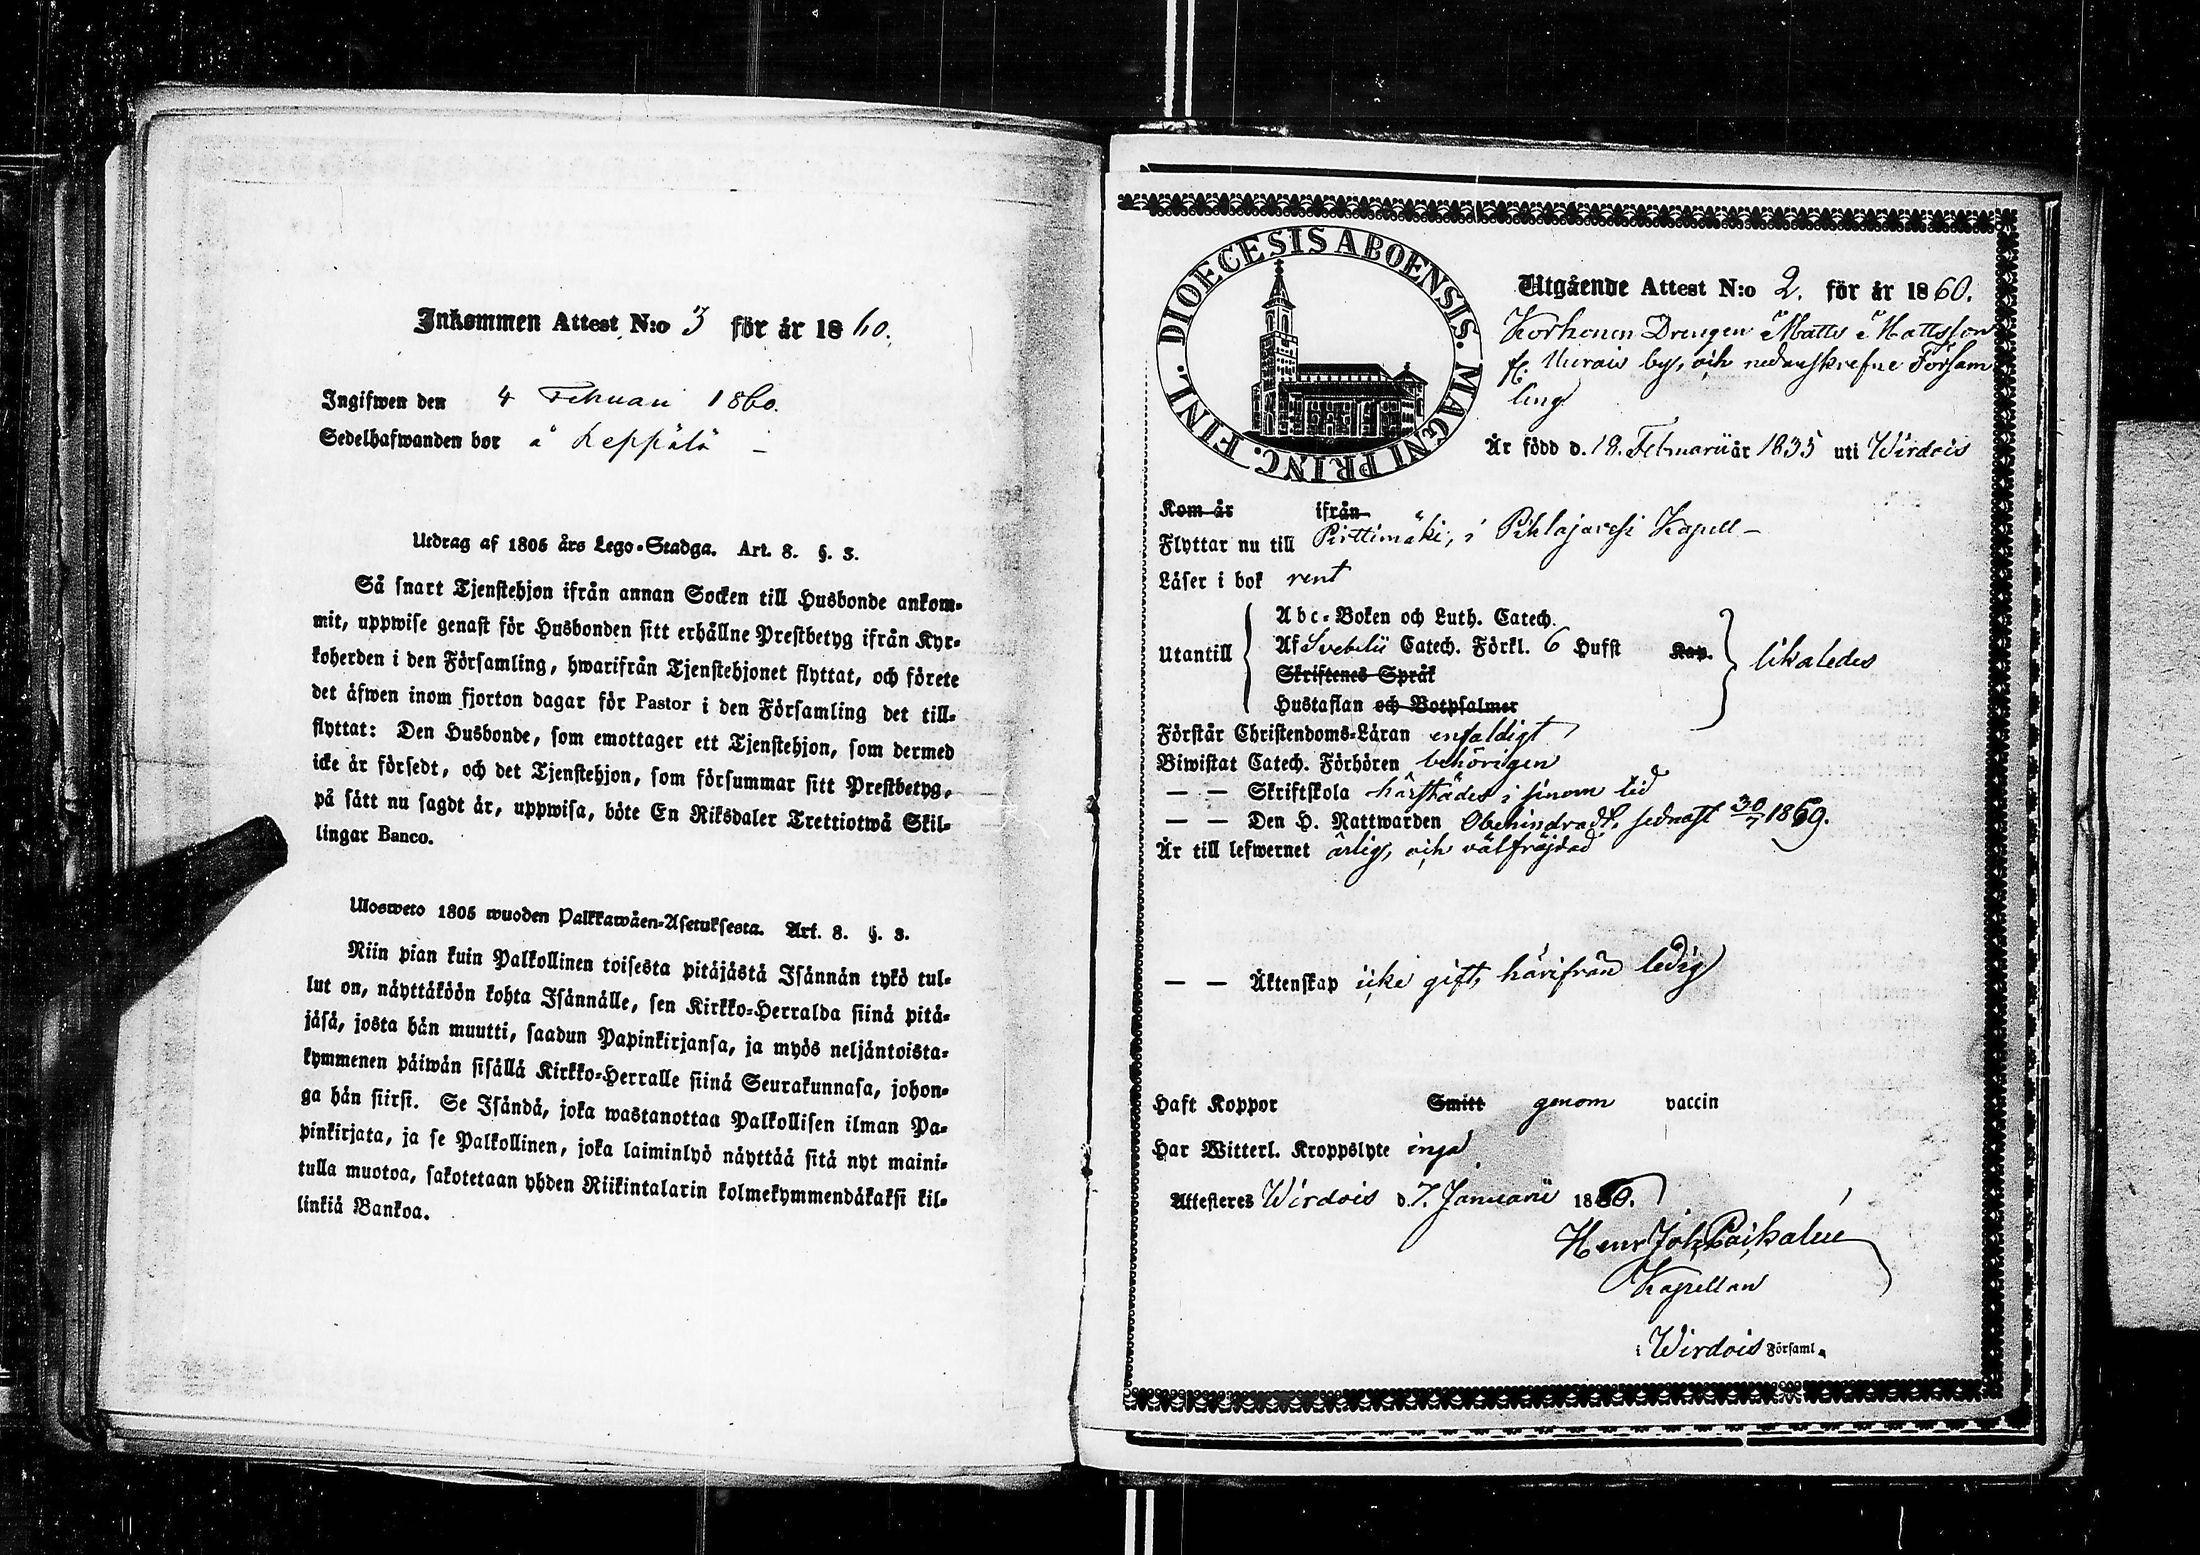 Inkommen Attest N:o 3 för år 1860.
Ingifwen den 4 Februari 1860.
Sedelhafwanden bor å Leppälä –
Utdrag af 1805 års Lego-Stadga. Art. 8. §. 3.
Så snart Tjenstehjon ifrån annan Socken till Husbonde ankom-
mit, uppwise genast för Husbonden sitt erhållne Prestbetyg ifrån Kyr-
koherden i den Församling, hwarifrån Tjenstehjonet flyttat, och förete
det äfwen inom fjorton dagar för Pastor i den Församling det till-
flyttat: Den Husbonde, som emottager ett Tjenstehjon, som dermed
icke är försedt, och det Tjenstehjon, som försummar sitt Prestbetyg,
på sätt nu sagdt är, uppwisa, böte En Riksdaler Trettiotwå Skil-
lingar Banco.
Ulosweto 1805 wuoden Palkkawäen-Asetuksesta. Art. 8. §. 3.
Niin pian kuin Palkollinen toisesta pitäjästä Isännän tykö tul-
lut on, näyttäköön kohta Isännälle, sen Kirkko-Herralda siinä pitä-
jäsä, josta hän muutti, saadun Papinkirjansa, ja myös neljäntoista-
kymmenen päiwän sisällä Kirkko-Herralle siinä Seurakunnasa, johon-
ga hän siirsi. Se Isändä, joka wastanottaa Palkollisen ilman Pa-
pinkirjata, ja se Palkollinen, joka laiminlyö näyttää sitä nyt maini-
tulla muotoa, sakotetaan yhden Riikintalarin kolmekymmendäkaksi kil-
linkiä Bankoa.
FINL. DIOECESIS ABOENSIS. MAGNI PRINC.
Utgående Attest N:o 2. för år 1860.
Korhonen Drengen Matts Mattsson
fr. Uurais by, och nedanskrefne Försam
ling
År född d. 18. Februarii år 1835 uti Wirdois
Kom år ifrån
Flyttar nu till Pirttimäki, i Pihlajavesi Kapell –
Läser i bok rent
Abc-Boken och Luth. Catech.
Utantill Af Svebelii Catech. Förkl. 6 Hufst Kap. likaledes
Skriftenes Språk
Hustaflan och Botpsalmer
Förstår Christendoms-Läran enfaldigt
Biwistat Catech. Förhören behörigen
— — Skriftskola härstädes i sinom tid
— — Den H. Nattwarden Obehindradt, sednast 30/7 1859.
Är till lefwernet ärlig, och välfräjdad
— — Äktenskap icke gift, härifrån ledig
Haft Koppor Smitt genom vaccin
Har Witterl. Kroppslyte inga
Attesteres Wirdois d. 7. Januarii 1860.
Henr Joh Päikalin
Kapellan
i Wirdois Församl.